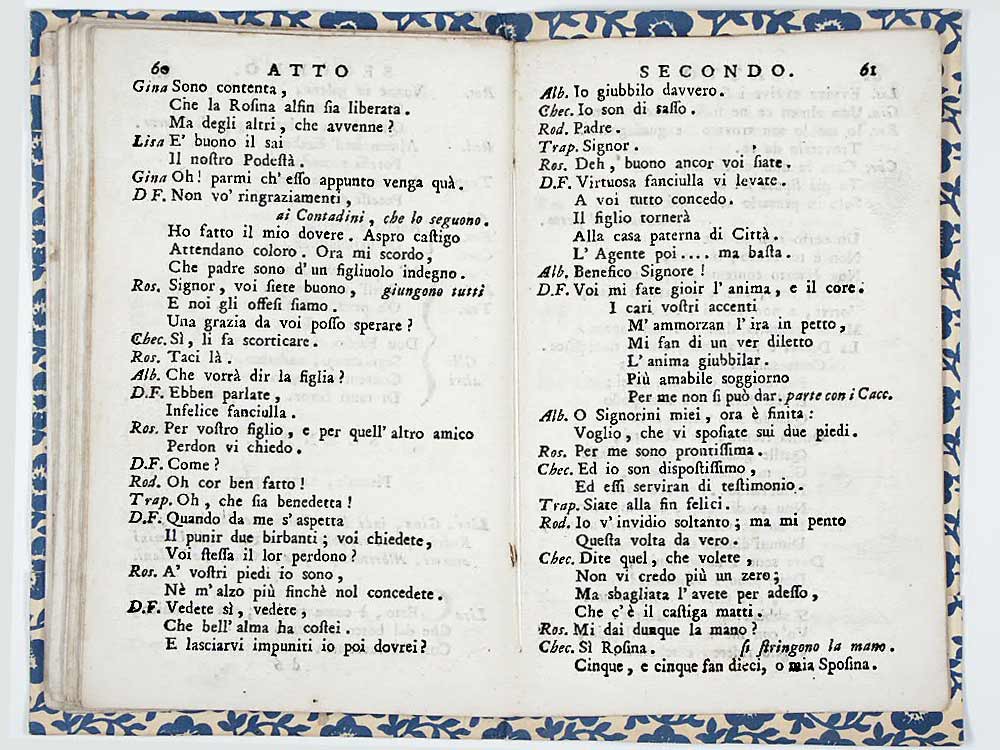 60 ATTO
Gina Sono contenta,
Che la Rosina alfin sia liberata.
Ma degli altri, che avvenne?
Lisa E' buono il sai
Il nostro Podestà.
Gina Oh! parmi ch' esso appunto venga quà.
D F. Non vo' ringraziamenti,
ai Contadini, che lo seguono.
Ho fatto il mio dovere. Aspro castigo
Attendano coloro. Ora mi scordo,
Che padre sono d'un figliuolo indegno.
Ros. Signor, voi siete buono, giungono tutti
E noi gli offesi siamo.
Una grazia da voi posso sperare?
Chec. Sì, li fa scorticare.
Ros. Taci là.
Alb. Che vorrà dir la figlia?
D.F. Ebben parlate,
Infelice fanciulla.
Ros. Per vostro figlio, e per quell' altro amico
Perdon vi chiedo.
D.F. Come?
Rod. Oh cor ben fatto!
Trap. Oh, che sia benedetta!
D.F. Quando da me s' aspetta
Il punir due birbanti; voi chiedete,
Voi stessa il lor perdono?
Ros. A' vostri piedi io sono,
Nè m'alzo più finchè nol concedete.
D.F. Vedete sì, vedete,
Che bell' alma ha costei.
E lasciarvi impuniti io poi dovrei?
SECONDO. 61
Alb. Io giubbilo davvero.
Chec. Io son di sasso.
Rod. Padre.
Trap. Signor.
Ros. Deh, buono ancor voi siate.
D.F. Virtuosa fanciulla vi levate.
A voi tutto concedo.
Il figlio tornerà
Alla casa paterna di Città.
L' Agente poi.... ma basta.
Alb. Benefico Signore!
D.F. Voi mi fate gioir l' anima, e il core.
I cari vostri accenti
M' ammorzan l' ira in petto,
Mi fan di un ver diletto
L' anima giubbilar.
Più amabile soggiorno
Per me non si può dar. parte con i Cacc.
Alb. O Signorini miei, ora è finita:
Voglio, che vi sposiate sui due piedi.
Ros. Per me sono prontissima.
Chec. Ed io son dispostissimo,
Ed essi serviran di testimonio.
Trap. Siate alla fin felici.
Rod. Io v'invidio soltanto; ma mi pento
Questa volta da vero.
Chec. Dite quel, che volete,
Non vi credo più un zero;
Ma sbagliata l'avete per adesso,
Che c'è il castiga matti.
Ros. Mi dai dunque la mano?
Chec. Sì Rosina. si stringono la mano.
Cinque, e cinque fan dieci, o mia Sposina.